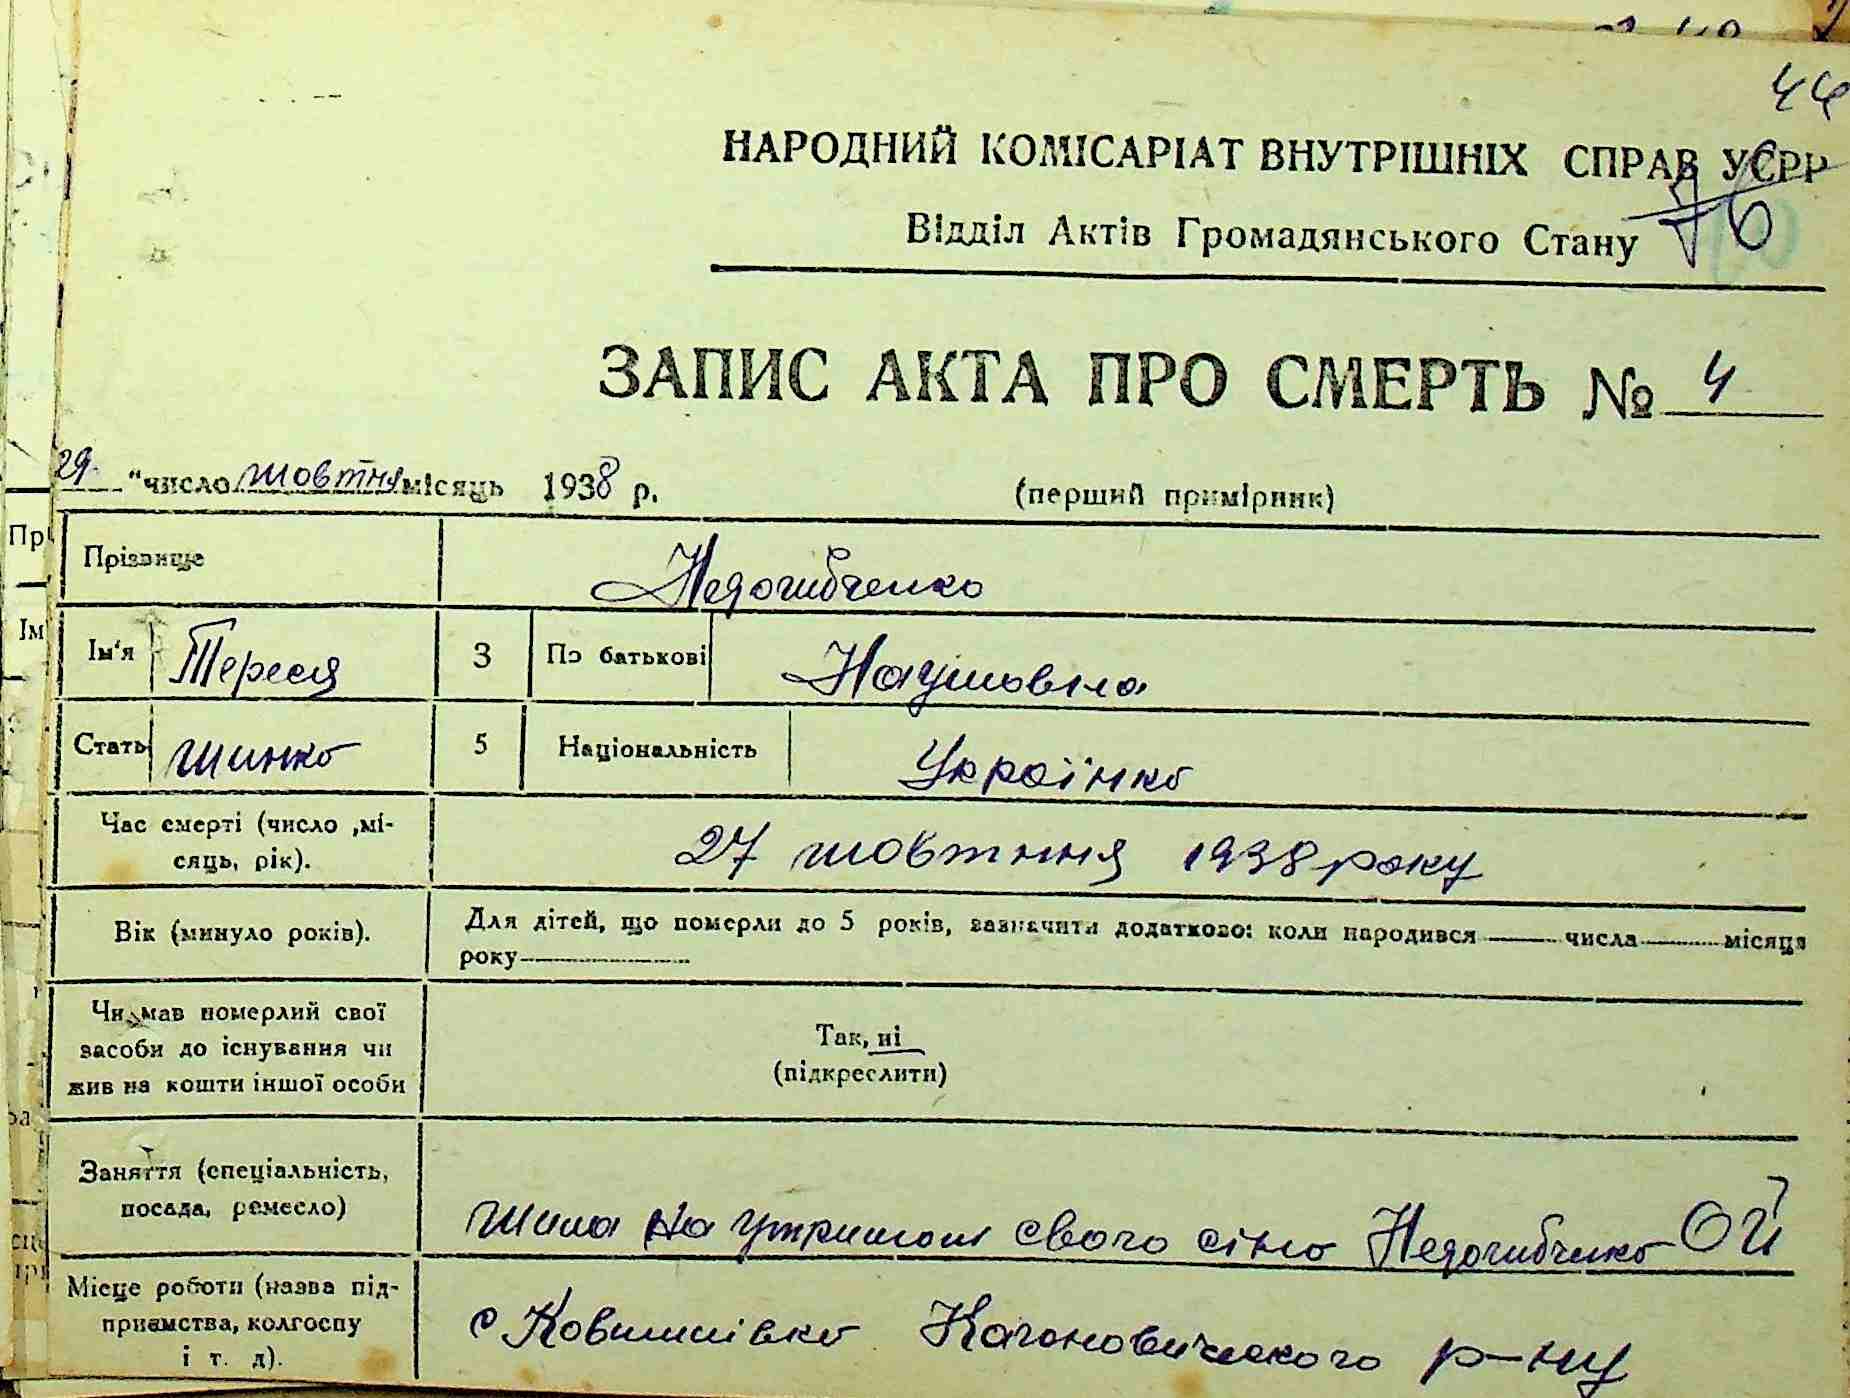 44
НАРОДНИЙ КОМІСАРІАТ ВНУТРІШНІХ СПРАВ УСРР
Відділ Актів Громадянського Стану 76
ЗАПИС АКТА ПРО СМЕРТЬ № 4
29 " число жовтня місяць 1938 р. (перший примірник)
Прізвище Недогибченко
Ім'я Тереся 3 По батькові Наумовна
Стать жинка 5 Національність Українка
Час смерті (число ,мі-
сяць, рік). 27 жовтння 1938 року
Вік (минуло років). Для дітей, що померли до 5 років, зазначити додатково: коли народився числа місяця
року
Чи мав померлий свої
засоби до існування чи
жив на кошти іншої особи
Так, ні
(підкреслити)
Заняття (спеціальність,
посада, ремесло)
Жила на утриман свого сіна Недогибченко ОЙ
Місце роботи (назва під-
приємства, колгоспу
і т. д).
с Ковшинівка Кагановичского р-ну
Пр
Ім